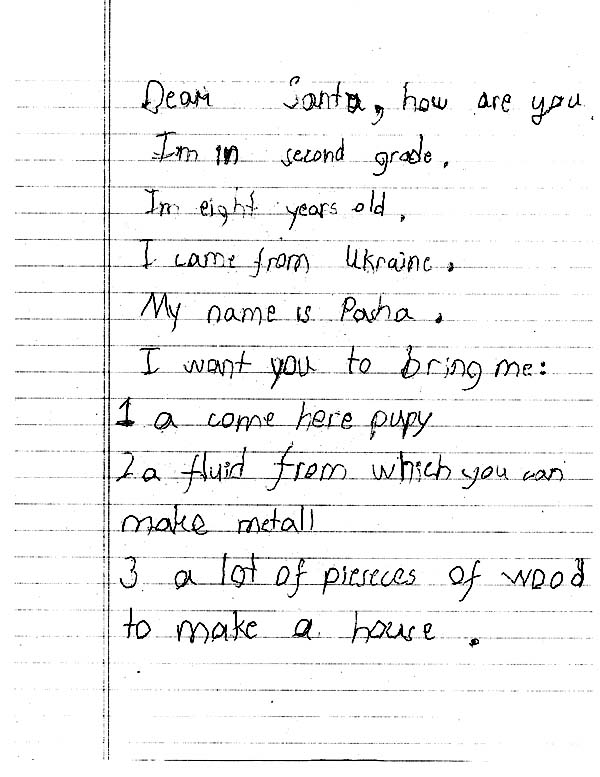 Dear Santa, how are you.
Im in second grade.
Im eight years old.
I came from Ukraine.
My name is Pasha.
I want you to bring me:
1 a come here pupy
2 a fluid from which you can
make metall
3 a lot of pieseces of wood
to make a house.